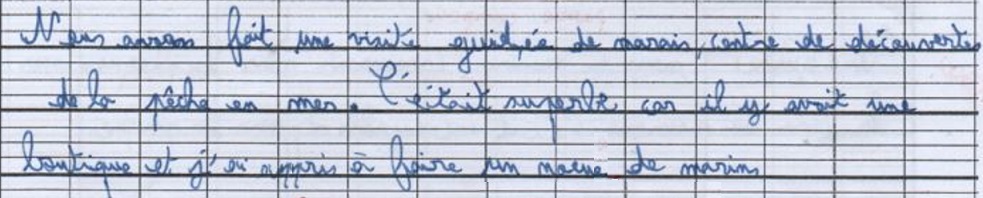 Nous avons fait une visite guidée de marais, centre de découverte
de la pêche en mer. C'était superbe car il y avait une
boutique et j'ai appris à faire un nœud de marin